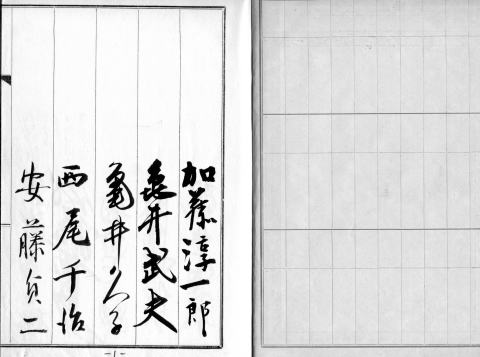 加藤淳一郎
亀井武夫
亀井久子
西尾千治
安藤貞二
-1-